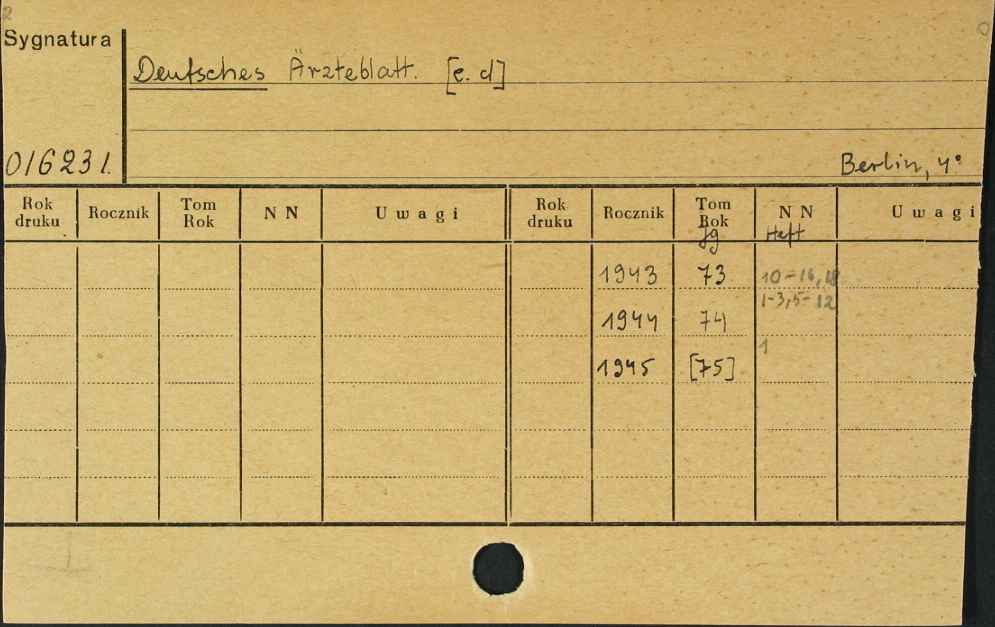 2
Sygnatura
Deutsches Ärzteblatt. [c. d]
016231.
Berlin, 4°
Rok druku Rocznik Tom Rok N N Uwagi Rok druku Rocznik Tom Rok N N Uwagi
Jg. Heft
1943 73 10-16, 18
1-3, 5-12
1944 74
1
1945 [75]